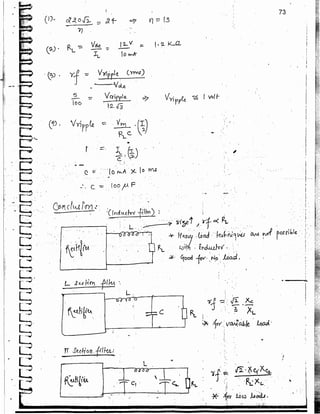 73
(1). 220√2 / η = 24 ⇒ η = 13
(2). R_L = Vdc / I_L = 12 V / 10 mA = 1.2 KΩ
(3). r.f = Vripple (rms) / Vdc
5 / 100 = Vripple / 12√3 ⇒ Vripple ≅ 1 volt
(4). Vripple = Vm / R_L C . (T/2)
1 = I/C . (T/2)
C = 10 mA × 10 ms
∴ C = 100 μF
Conclusion:
(Inductor film):
L
size↑, r.f ∝ R_L
* Heavy load techniques are not possible
with Inductor.
* Good for No load.
Rectifier
R_L
L section filter
L
Rectifier
C
R_L
r.f = √2/3 . Xc/X_L
* for variable load
π section filter:
L
Rectifier
C₁
C₂
R_L
r.f = √2 . Xc₁ Xc₂ / R_L X_L
* for Low loads.